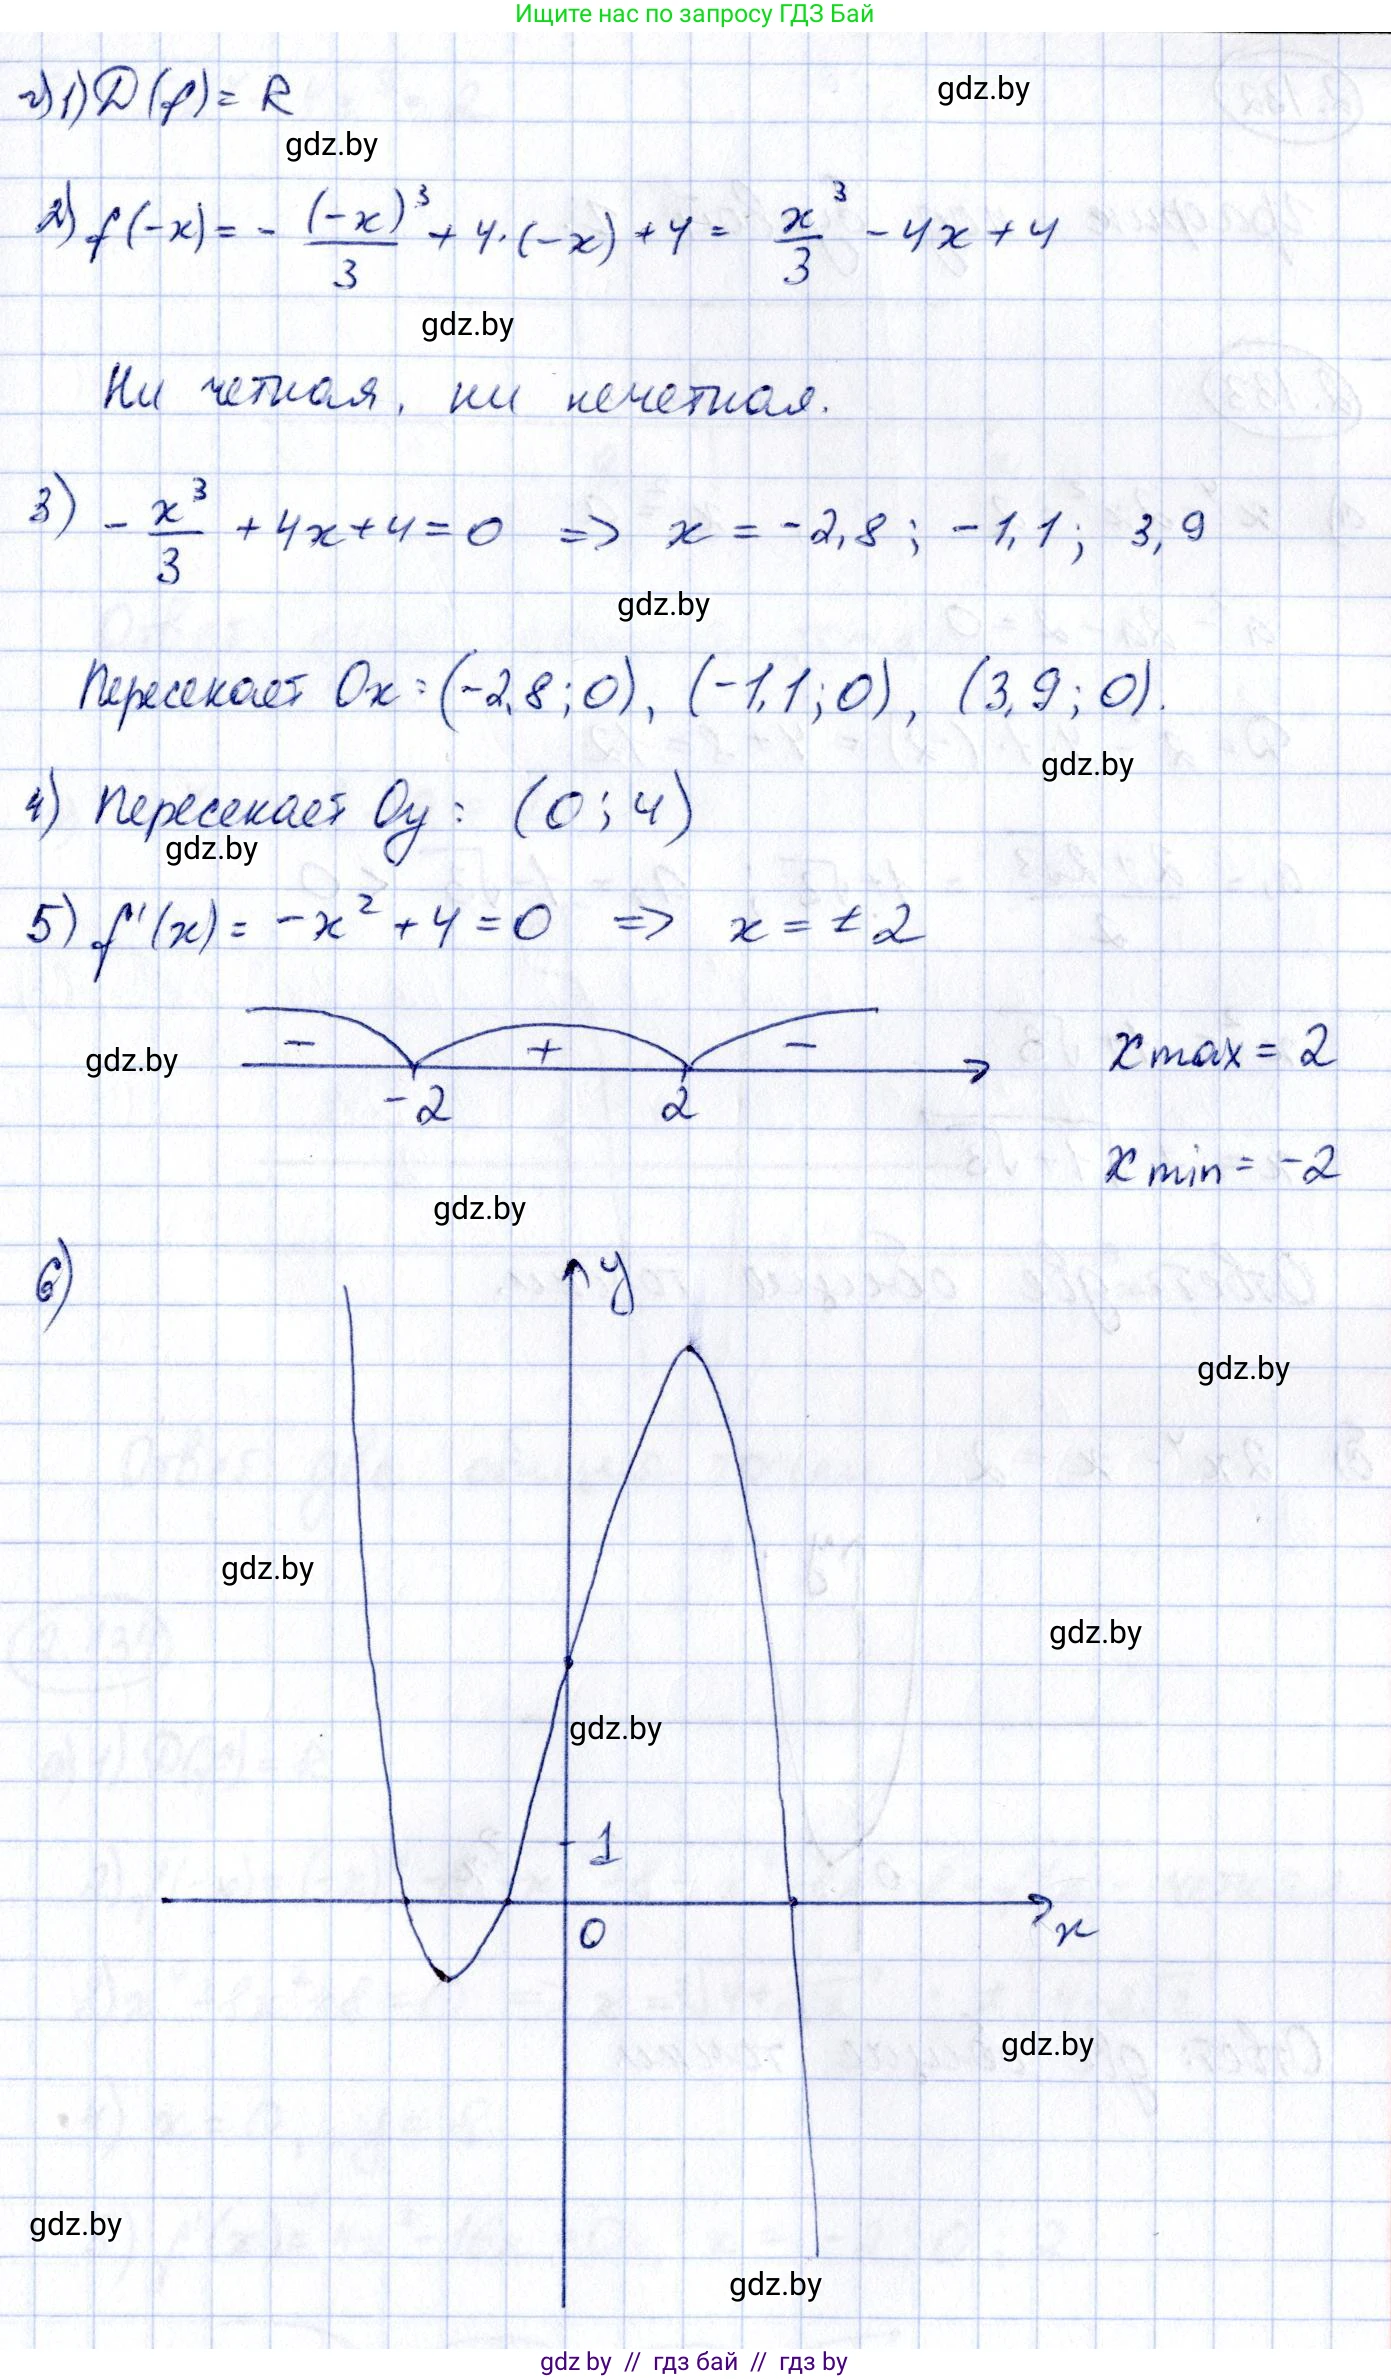 Ищите нас по запросу ГДЗ Бай
г) 1) D(f) = R
gdz.by
gdz.by
2) f(-x) = - (-x)³/3 + 4·(-x) + 4 = x³/3 - 4x + 4
gdz.by
Ни четная, ни нечетная.
3) - x³/3 + 4x + 4 = 0 => x = -2,8; -1,1; 3,9
gdz.by
Пересекает Ox: (-2,8; 0), (-1,1; 0), (3,9; 0).
gdz.by
4) Пересекает Oy: (0; 4)
gdz.by
5) f'(x) = -x² + 4 = 0 => x = ±2
- + -
gdz.by
xmax = 2
-2 2
xmin = -2
gdz.by
6)
y
gdz.by
gdz.by
gdz.by
gdz.by
1
0
x
gdz.by
gdz.by
gdz.by
gdz by // гдз бай // гдз by